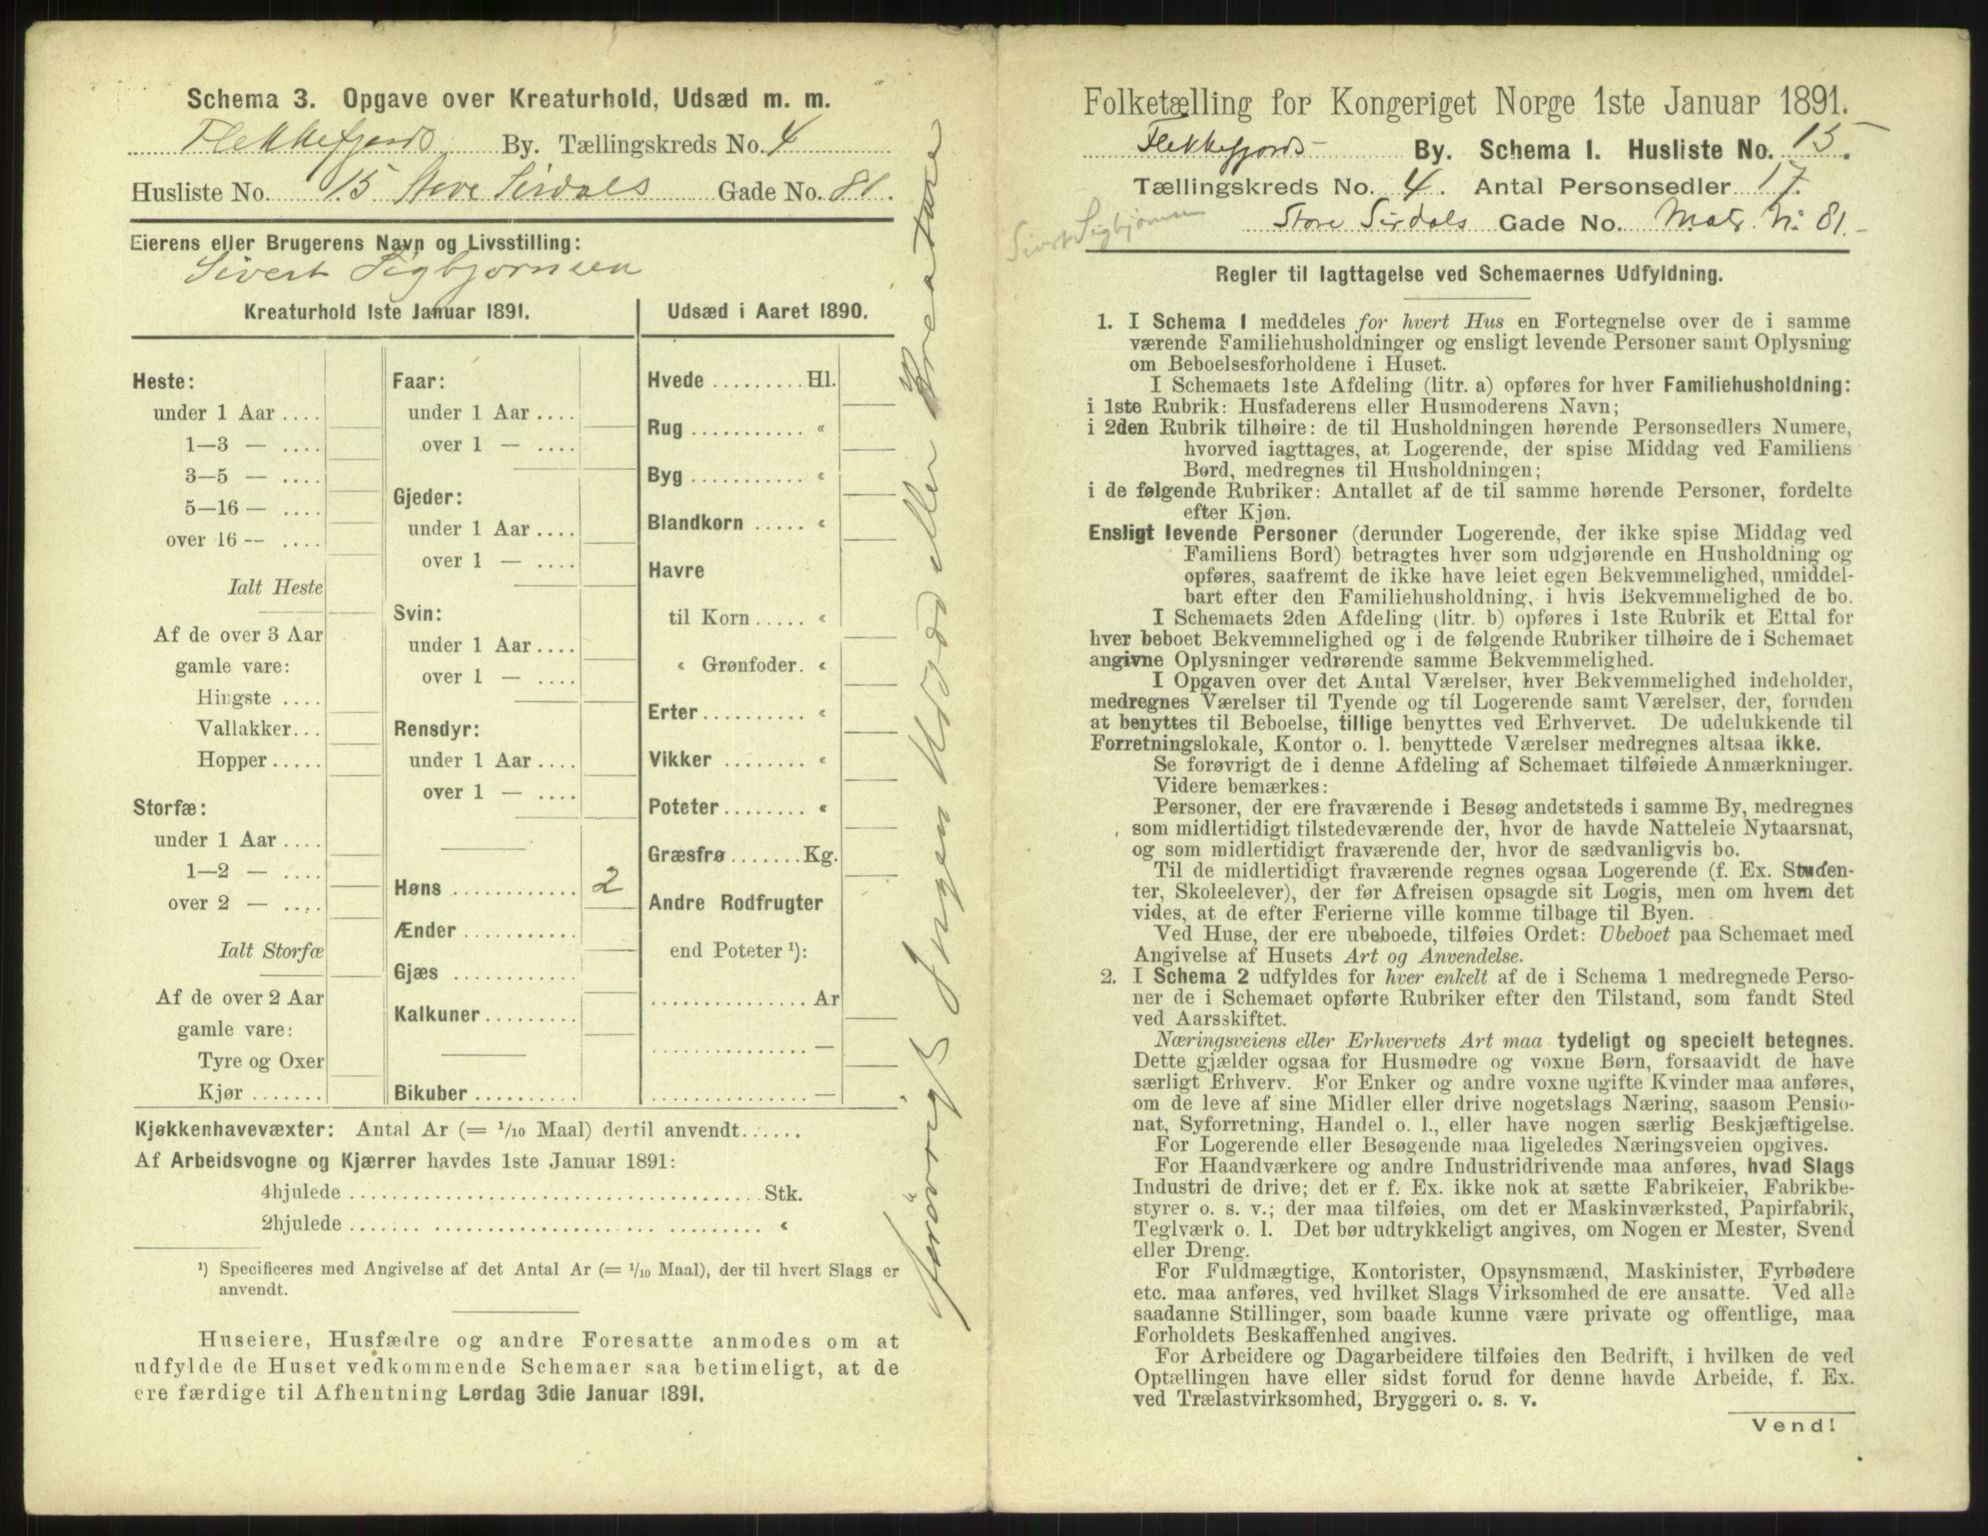 Schema 3. Opgave over Kreaturhold, Udsæd m. m.
Flekkefjords By. Tællingskreds No. 4
Husliste No. 15 Store Sirdals Gade No. 81.
Eierens eller Brugerens Navn og Livsstilling:
Sivert Sigbjørnsen
Kreaturhold 1ste Januar 1891.
Heste:
under 1 Aar ....
1—3 — ....
3—5 — ....
5—16 — ....
over 16 — ....
Ialt Heste
Af de over 3 Aar
gamle vare:
Hingste ....
Vallakker...
Hopper .....
Storfæ:
under 1 Aar ....
1—2 — ....
over 2 — ....
Ialt Storfæ
Af de over 2 Aar
gamle vare:
Tyre og Oxer
Kjør .......
Faar:
under 1 Aar ....
over 1 — ....
Gjeder:
under 1 Aar ....
over 1 — ....
Svin:
under 1 Aar ....
over 1 — ....
Rensdyr:
under 1 Aar ....
over 1 — ....
Høns ............ 2
Ænder ...........
Gjæs ............
Kalkuner .........
Bikuber ..........
Udsæd i Aaret 1890.
Hvede ......... Hl.
Rug ........... «
Byg ........... «
Blandkorn ..... «
Havre
til Korn ..... «
« Grønfoder. «
Erter .......... «
Vikker ........ «
Poteter ........ «
Græsfrø ....... Kg.
Andre Rodfrugter
end Poteter ¹):
............... Ar
............... —
............... —
Kjøkkenhavevæxter: Antal Ar (= 1/10 Maal) dertil anvendt......
Af Arbeidsvogne og Kjærrer havdes 1ste Januar 1891:
4hjulede ..................................... Stk.
2hjulede ..................................... «
¹) Specificeres med Angivelse af det Antal Ar (= 1/10 Maal), der til hvert Slags er
anvendt.
Huseiere, Husfædre og andre Foresatte anmodes om at
udfylde de Huset vedkommende Schemaer saa betimeligt, at de
ere færdige til Afhentning Lørdag 3die Januar 1891.
Ingen eller
Folketælling for Kongeriget Norge 1ste Januar 1891.
Flekkefjords By. Schema I. Husliste No. 15.
Tællingskreds No. 4. Antal Personsedler 17.
Sivert Sigbjørnsen
Store Sirdals Gade No. Matr. N: 81.
Regler til Iagttagelse ved Schemaernes Udfyldning.
1. I Schema 1 meddeles for hvert Hus en Fortegnelse over de i samme
værende Familiehusholdninger og ensligt levende Personer samt Oplysning
om Beboelsesforholdene i Huset.
I Schemaets 1ste Afdeling (litr. a) opføres for hver Familiehusholdning:
i 1ste Rubrik: Husfaderens eller Husmoderens Navn;
i 2den Rubrik tilhøire: de til Husholdningen hørende Personsedlers Numere,
hvorved iagttages, at Logerende, der spise Middag ved Familiens
Bord, medregnes til Husholdningen;
i de følgende Rubriker: Antallet af de til samme hørende Personer, fordelte
efter Kjøn.
Ensligt levende Personer (derunder Logerende, der ikke spise Middag ved
Familiens Bord) betragtes hver som udgjørende en Husholdning og
opføres, saafremt de ikke have leiet egen Bekvemmelighed, umiddel-
bart efter den Familiehusholdning, i hvis Bekvemmelighed de bo.
I Schemaets 2den Afdeling (litr. b) opføres i 1ste Rubrik et Ettal for
hver beboet Bekvemmelighed og i de følgende Rubriker tilhøire de i Schemaet
angivne Oplysninger vedrørende samme Bekvemmelighed.
I Opgaven over det Antal Værelser, hver Bekvemmelighed indeholder,
medregnes Værelser til Tyende og til Logerende samt Værelser, der, foruden
at benyttes til Beboelse, tillige benyttes ved Erhvervet. De udelukkende til
Forretningslokale, Kontor o. l. benyttede Værelser medregnes altsaa ikke.
Se forøvrigt de i denne Afdeling af Schemaet tilføiede Anmærkninger.
Videre bemærkes:
Personer, der ere fraværende i Besøg andetsteds i samme By, medregnes
som midlertidigt tilstedeværende der, hvor de havde Natteleie Nytaarsnat,
og som midlertidigt fraværende der, hvor de sædvanligvis bo.
Til de midlertidigt fraværende regnes ogsaa Logerende (f. Ex. Studen-
ter, Skoleelever), der før Afreisen opsagde sit Logis, men om hvem det
vides, at de efter Ferierne ville komme tilbage til Byen.
Ved Huse, der ere ubeboede, tilføies Ordet: Ubeboet paa Schemaet med
Angivelse af Husets Art og Anvendelse.
2. I Schema 2 udfyldes for hver enkelt af de i Schema 1 medregnede Perso-
ner de i Schemaet opførte Rubriker efter den Tilstand, som fandt Sted
ved Aarsskiftet.
Næringsveiens eller Erhvervets Art maa tydeligt og specielt betegnes.
Dette gjælder ogsaa for Husmødre og voxne Børn, forsaavidt de have
særligt Erhverv. For Enker og andre voxne ugifte Kvinder maa anføres,
om de leve af sine Midler eller drive nogetslags Næring, saasom Pensio-
nat, Syforretning, Handel o. l., eller have nogen særlig Beskjæftigelse.
For Logerende eller Besøgende maa ligeledes Næringsveien opgives.
For Haandværkere og andre Industridrivende maa anføres, hvad Slags
Industri de drive; det er f. Ex. ikke nok at sætte Fabrikeier, Fabrikbe-
styrer o. s. v.; der maa tilføies, om det er Maskinværksted, Papirfabrik,
Teglværk o. l. Det bør udtrykkeligt angives, om Nogen er Mester, Svend
eller Dreng.
For Fuldmægtige, Kontorister, Opsynsmænd, Maskinister, Fyrbødere
etc. maa anføres, ved hvilket Slags Virksomhed de ere ansatte. Ved alle
saadanne Stillinger, som baade kunne være private og offentlige, maa
Forholdets Beskaffenhed angives.
For Arbeidere og Dagarbeidere tilføies den Bedrift, i hvilken de ved
Optællingen have eller sidst forud for denne havde Arbeide, f. Ex.
ved Trælastvirksomhed, Bryggeri o. s. v.
Vend!